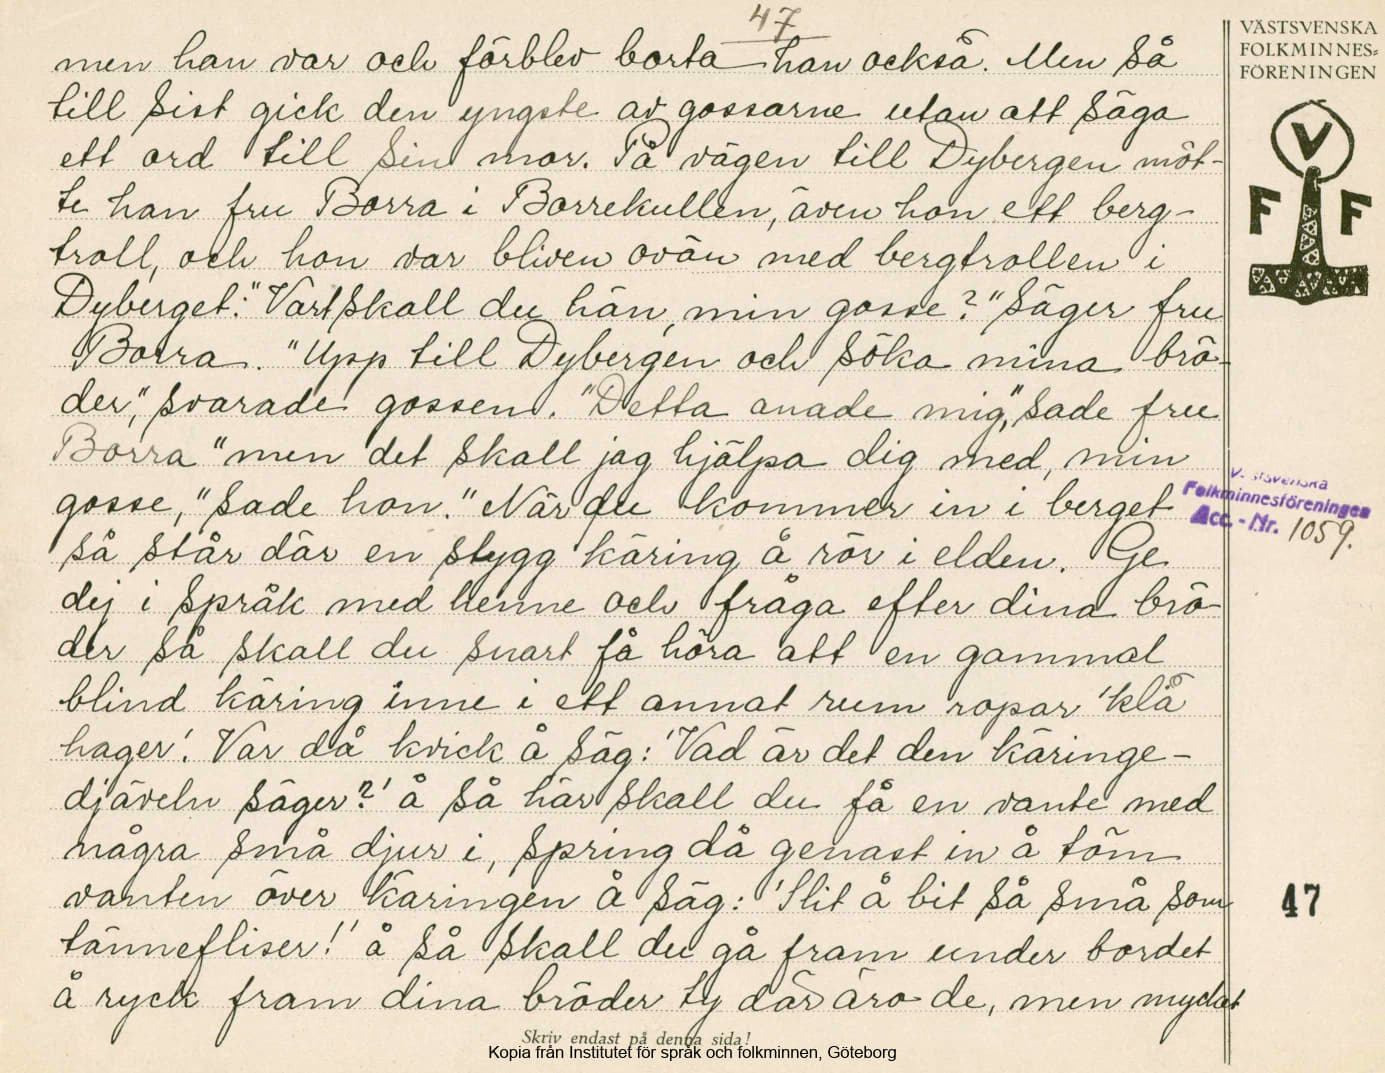 47
men han var och förblev borta han också. Men så
till sist gick den yngste av gossarne utan att säga
ett ord till sin mor. På vägen till Dybergen möt-
te han fru Borra i Borrekullen, även hon ett berg-
troll, och hon var bliven ovän med bergtrollen i
Dyberget: "Vart skall du hän, min gosse?" säger fru
Borra. "Upp till Dybergen och söka mina brö-
der," svarade gossen. "Detta anade mig," sade fru
Borra "men det skall jag hjälpa dig med, min
gosse," sade hon. "När du kommer in i berget
så står där en stygg käring å rör i elden. Ge
dej i språk med henne och fråga efter dina brö-
der så skall du snart få höra att en gammal
blind käring inne i ett annat rum ropar 'klå
hager'. Var då kvick å säg: 'Vad är det den käringe-
djäveln säger?' å så här skall du få en vante med
några små djur i, spring då genast in å töm
vanten över käringen å säg: 'Slit å bit så små som
tännefliser!' å så skall du gå fram under bordet
å ryck fram dina bröder ty där äro de, men mycket
Skriv endast på denna sida!
Kopia från Institutet för språk och folkminnen, Göteborg
VÄSTSVENSKA
FOLKMINNES=
FÖRENINGEN
V
F F
Västsvenska
Folkminnesföreningen
Acc. - Nr. 1059.
47